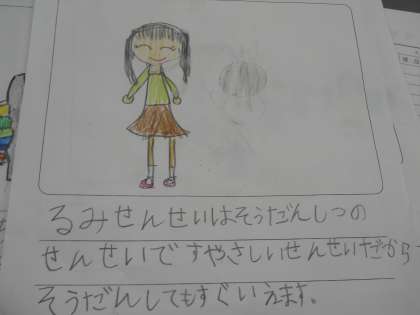 るみせんせいはそうだんしつの
せんせいです やさしいせんせいだから
そうだんしてもすぐいえます。